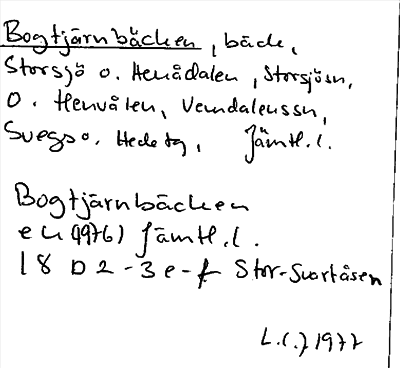 Bogtjärnbäcken, bäck,
Storsjö o. Henådalen, Storsjösn,
o. Henvålen, Vemdalenssn,
Svegs o. Hede tg, Jämtl.l.
Bogtjärnbäcken
ek (1976) Jämtl.l.
18 D 2-3 e-f Stor-Svartåsen
1977